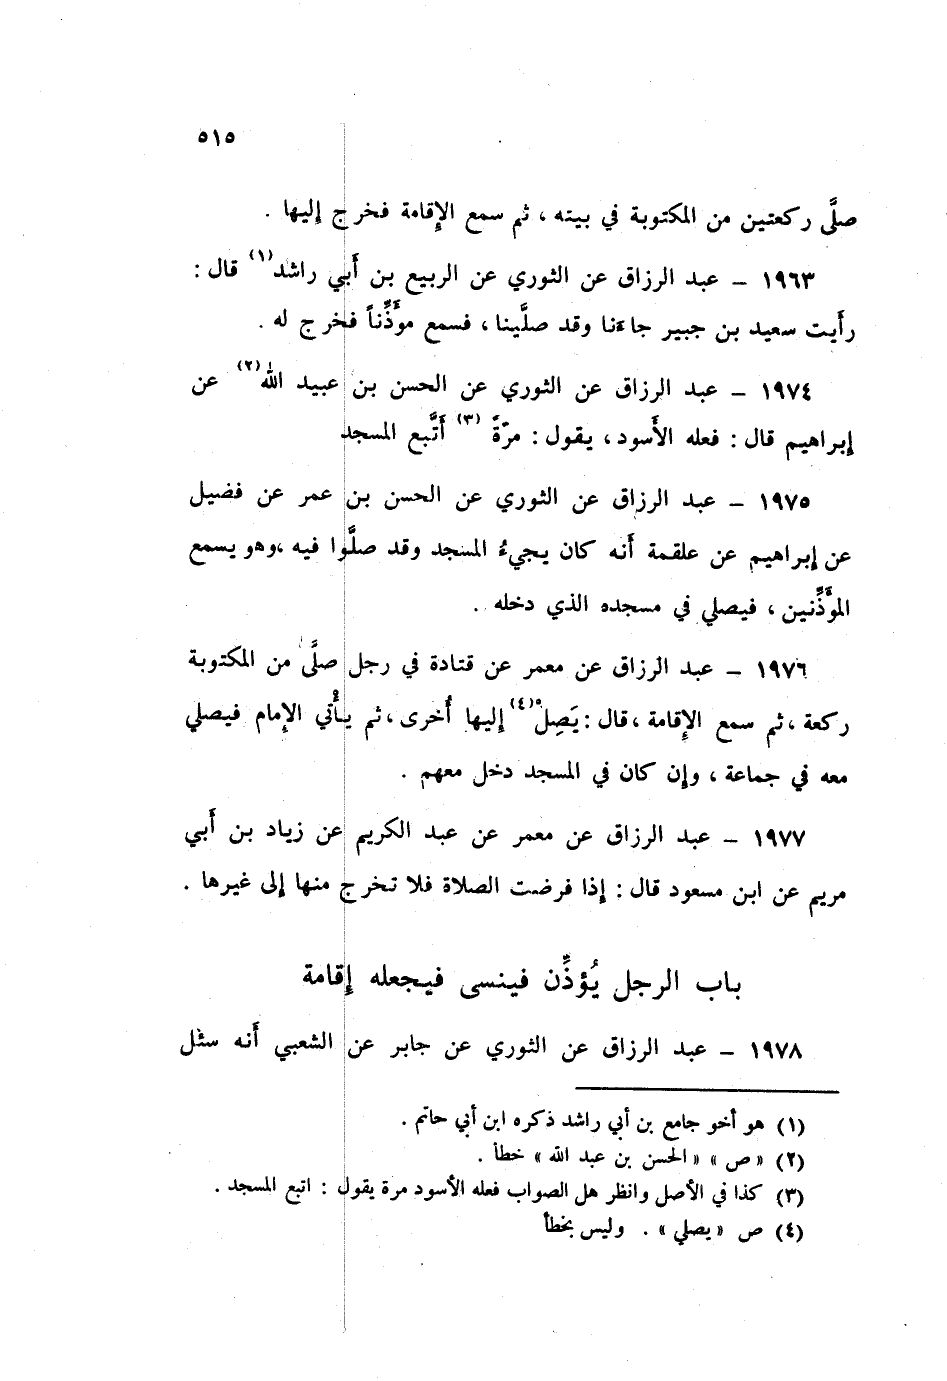 ٥١٥
صلَّى ركعتين من المكتوبة في بيته ، ثم سمع الإقامة فخرج إليها .
١٩٦٣ – عبد الرزاق عن الثوري عن الربيع بن أبي راشد(١) قال :
رأيت سعيد بن جبير جاءنا وقد صلَّينا ، فسمع مؤذِّناً فخرج له .
١٩٧٤ – عبد الرزاق عن الثوري عن الحسن بن عبيد الله(٢) عن
إبراهيم قال : فعله الأسود ، يقول : مرّةً (٣) أتَّبع المسجد
١٩٧٥ – عبد الرزاق عن الثوري عن الحسن بن عمر عن فضيل
عن إبراهيم عن علقمة أنه كان يجيءُ المسجد وقد صلَّوا فيه ،وهو يسمع
المؤذِّنين ، فيصلي في مسجده الذي دخله .
١٩٧٦ – عبد الرزاق عن معمر عن قتادة في رجل صلَّى من المكتوبة
ركعة ، ثم سمع الإقامة ، قال : يَصِلْ(٤) إليها أُخرى ، ثم يأتي الإمام فيصلي
معه في جماعة ، وإن كان في المسجد دخل معهم .
١٩٧٧ – عبد الرزاق عن معمر عن عبد الكريم عن زياد بن أبي
مريم عن ابن مسعود قال : إذا فرضت الصلاة فلا تخرج منها إلى غيرها .
باب الرجل يُؤذِّن فينسى فيجعله إقامة
١٩٧٨ – عبد الرزاق عن الثوري عن جابر عن الشعبي أنه سئل
(١) هو أخو جامع بن أبي راشد ذكره ابن أبي حاتم .
(٢) « ص » « الحسن بن عبد الله » خطأ .
(٣) كذا في الأصل وانظر هل الصواب فعله الأسود مرة يقول : اتبع المسجد .
(٤) ص « يصلي » . وليس بخطأ